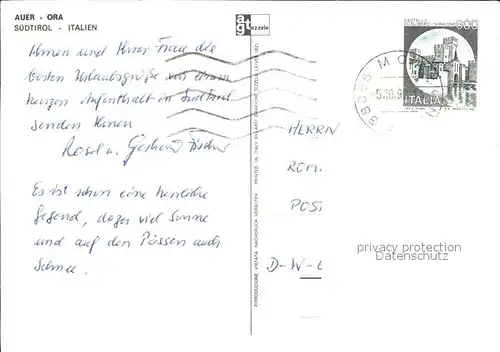 AUER - ORA
SÜDTIROL - ITALIEN
Ihnen und Ihrer Frau die
besten Urlaubsgrüße von einem
kurzen Aufenthalt in Südtirol
senden Ihnen
Rosel u. Gerhard Fischer
Es ist schon eine herrliche
Gegend, dazu viel Sonne
und auf den Pässen auch
Schnee.
agt tezzele
RIPRODUZIONE VIETATA NACHDRUCK VERBOTEN
PRINTED IN ITALY BY
ITALIA
HERRN
ROM.
POST
D-W-
privacy protection
Datenschutz